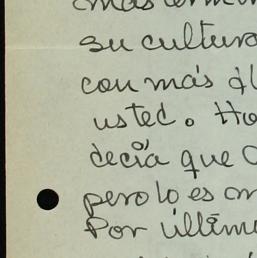 su cultura
con más
usted. Ho
decía que
pero lo es
Por últim